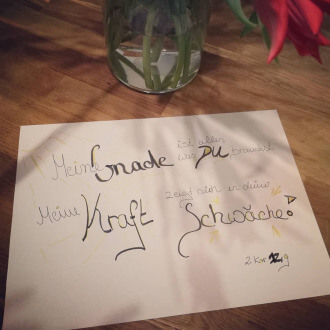 Meine Gnade ist alles was DU brauchst.
Meine Kraft zeigt sich in deiner Schwäche!
2 Kor 12,9